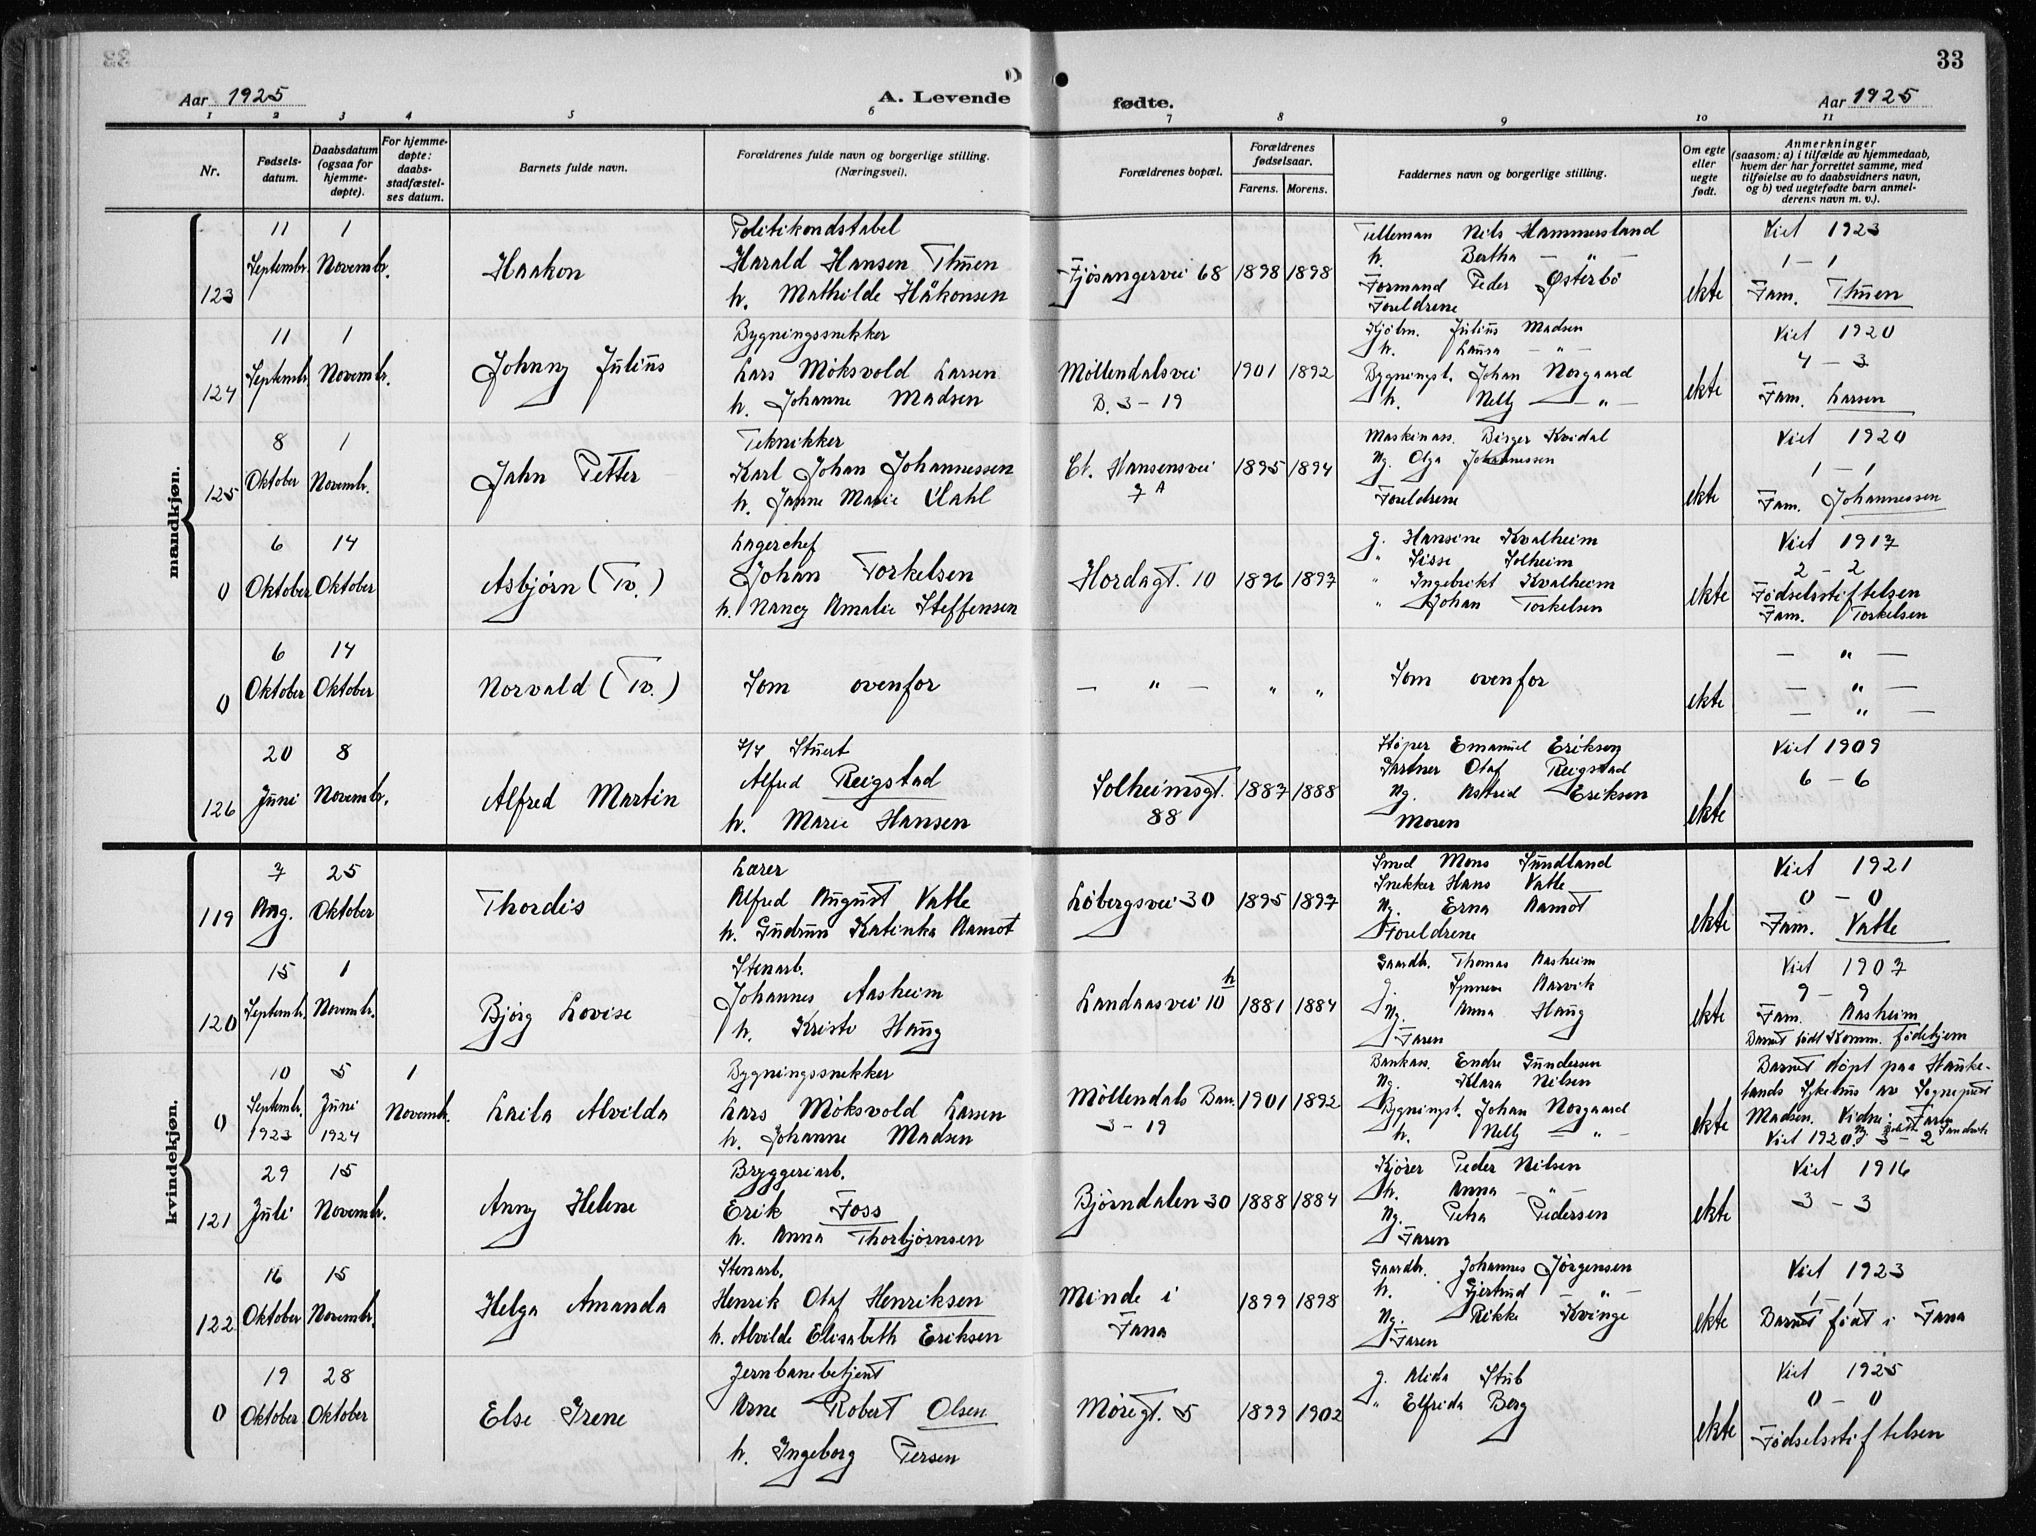 33
Aar 1925
A. Levende fødte.
Aar 1925
1 2 3 4 5 6 7 8 9 10 11
Nr.
Fødsels-
datum.
Daabsdatum
(ogsaa for
hjemme-
døpte).
For hjemme-
døpte:
daabs-
stadfæstel-
ses datum.
Barnets fulde navn.
Forældrenes fulde navn og borgerlige stilling.
(Næringsvei).
Forældrenes bopæl.
Forældrenes
fødselsaar.
Farens. Morens.
Faddernes navn og borgerlige stilling.
Om egte
eller
uegte
født.
Anmerkninger
(saasom: a) i tilfælde av hjemmedaab,
hvem der har forrettet samme, med
tilføielse av to daabsvidners navn,
og b) ved uegtefødte barn anmel-
derens navn m. v.).
mandkjøn.
123
11
Septembr.
1
Novembr.
Haakon
Politikondstabel
Harald Hansen Thuen
h. Mathilde Håkonsen
Fjösangervei 68
1898 1898
Telleman Nils Hammersland
h. Bertha — " —
Formand Peder Østerbö
Foreldrene
ekte
Viet 1923
1 – 1
Fam. Thuen
124
11
Septembr.
1
Novembr.
Johnny Julius
Bygningssnekker
Lars Möksvold Larsen
h. Johanne Madsen
Möllendalsvei
B. 3 – 19
1901 1892
Kjöbm. Julius Madsen
h. Laura — " —
Bygningst. Johan Norgaard
h. Nelly — " —
ekte
Viet 1920
4 – 3
Fam. Larsen
125
8
Oktober
1
Novembr.
Jahn Petter
Teknikker
Karl Johan Johannessen
h. Janne Marie Dahl
Chr. Hansensvei
7 A
1895 1894
Maskinass. Birger Kvidal
Ng. Olga Johannessen
Foreldrene
ekte
Viet 1920
1 – 1
Fam. Johannessen
0
6
Oktober
14
Oktober
Asbjørn (Tv.)
Lagerchef
Johan Torkelsen
h. Nancy Amalie Steffensen
Hordagt. 10
1896 1897
g. Hansine Kvalheim
" Sisse Solheim
" Ingebrikt Kvalheim
" Johan Torkelsen
ekte
Viet 1917
2 – 2
Fødselsstiftelsen
Fam. Torkelsen
0
6
Oktober
14
Oktober
Norvald (Tv.)
Som ovenfor
— " —
" "
Som ovenfor
ekte
— " —
— " —
— " —
126
20
Juni
8
Novembr.
Alfred Martin
Stuert
Alfred Reigstad
h. Marie Hansen
Solheimsgt.
88
1887 1888
Støper Emanuel Eriksen
Gartner Olaf Reigstad
Ng. Astrid Eriksen
Moren
ekte
Viet 1909
6 – 6
kvindekjøn.
119
7
Aug.
25
Oktober
Thordis
Lærer
Alfred August Vatle
h. Gudrun Katinka Aamot
Löbergsvei 30
1895 1897
Smed Mons Sundland
Snekker Hans Vatle
Ng. Erna Aamot
Foreldrene
ekte
Viet 1921
0 – 0
Fam. Vatle
120
15
Septembr.
1
Novembr.
Bjørg Lovise
Stenarb.
Johannes Aasheim
h. Kristi Haug
Landaasvei 10 h
1881 1884
Gaardb. Thomas Aasheim
g. Synneve Aarvik
Ng. Anna Haug
Faren
ekte
Viet 1907
9 – 9
Fam. Aasheim
Barnet født Komm. fødehjem
0
10
Septembr.
1923
5
Juni
1924
1
Novembr.
Laila Alvilda
Bygningssnekker
Lars Möksvold Larsen
h. Johanne Madsen
Möllendals Bar.
3 – 19
1901 1892
Bankass. Endre Gundersen
Ng. Klara Nilsen
Bygningst. Johan Norgaard
h. Nelly — " —
ekte
Barnet döpt paa Hauke-
lands Sykehus av Sogneprest
Madsen. Vidne: Faren
Viet 1920 3 – 2
121
29
Juli
15
Novembr.
Anny Helene
Bryggeriarb.
Erik Foss
h. Anna Thorbjørnsen
Bjørndalen 30
1888 1884
Kjører Peder Nilsen
h. Anna — " —
Ng. Petra Pedersen
Faren
ekte
Viet 1916
3 – 3
122
16
Oktober
15
Novembr.
Helga Amanda
Stenarb.
Henrik Olaf Henriksen
h. Alvilde Elisabeth Eriksen
Minde i
Fana
1899 1898
Gaardb. Johannes Jörgensen
h. Gjertrud — " —
Ng. Rikke Kvinge
Faren
ekte
Viet 1923
1 – 1
Barnet født i Fana
0
19
Oktober
28
Oktober
Else Irene
Jernbanebetjent
Arne Robert Olsen
h. Ingeborg Persen
Møregt. 5
1899 1902
g. Alida Stub
" Elfrida Berg
ekte
Viet 1925
0 – 0
Fødselsstiftelsen